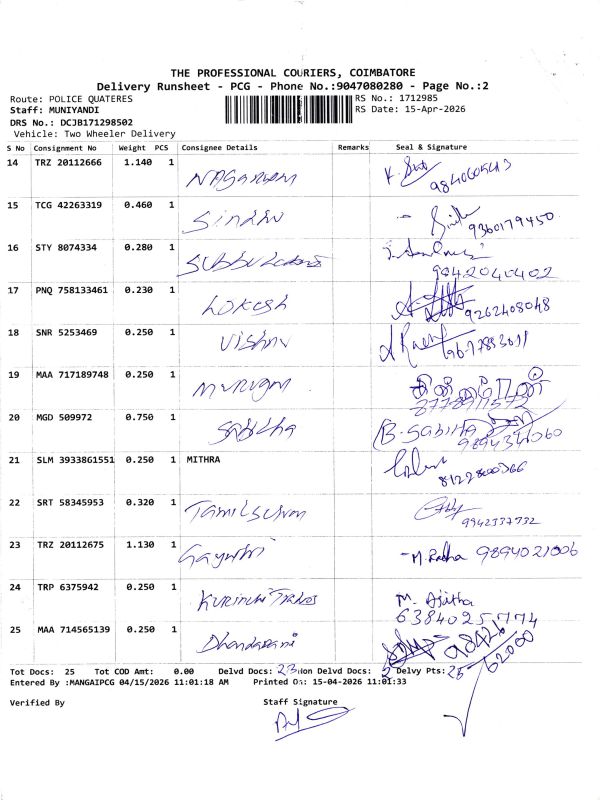 THE PROFESSIONAL COURIERS, COIMBATORE
Delivery Runsheet - PCG - Phone No.:9047080280 - Page No.:2
Route: POLICE QUATERES
RS No.: 1712985
Staff: MUNIYANDI
RS Date: 15-Apr-2026
DRS No.: DCJB171298502
Vehicle: Two Wheeler Delivery
S No Consignment No Weight PCS Consignee Details Remarks Seal & Signature
14 TRZ 20112666 1.140 1 9840605413
15 TCG 42263319 0.460 1 Sindhu 9360179450
16 STY 8074334 0.280 1 9042040402
17 PNQ 758133461 0.230 1 Lokesh 9262408048
18 SNR 5253469 0.250 1 Vishnu
19 MAA 717189748 0.250 1 Murugan
20 MGD 509972 0.750 1 Sabitha B. Sabitha
21 SLM 3933861551 0.250 1 MITHRA
22 SRT 58345953 0.320 1 Tamilselvan 9942337732
23 TRZ 20112675 1.130 1 Gayathri M. Radha 9894021006
24 TRP 6375942 0.250 1 M. Ajitha
6384025774
25 MAA 714565139 0.250 1 Dhandapani 98426
62000
Tot Docs: 25 Tot COD Amt: 0.00 Delvd Docs: 23 Non Delvd Docs: 2 Delvy Pts: 25
Entered By :MANGAIPCG 04/15/2026 11:01:18 AM Printed On: 15-04-2026 11:01:33
Verified By Staff Signature